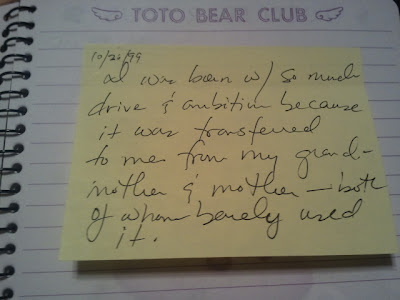 TOTO BEAR CLUB
10/26/99
I was born w/ so much
drive & ambition because
it was transferred
to me from my grand-
mother & mother — both
of whom barely used
it.